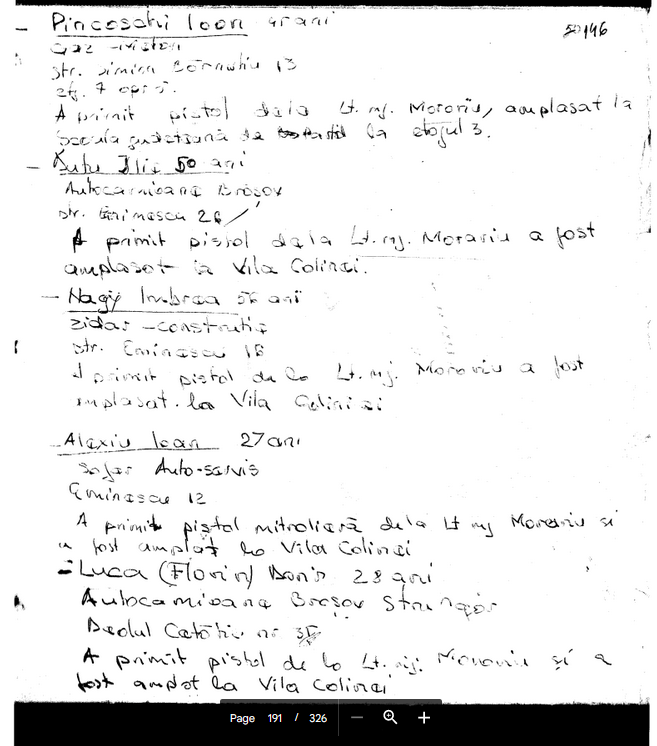 - Pincoschi Ioan 4r ani
50146
Gaz -
str. Simion Bărnuțiu 13
et. 7 apr 5.
A primit pistol dela Lt. mj. Mororiu, amplasat la
Școala județeană de la etajul 3.
- Ilie 50 ani
Autocamioane Brașov
str. Eminescu 26
A primit pistol dela Lt. mj. Morariu a fost
amplasat la Vila Colinei.
- Nagy Imbrea 56 ani
zidar - construcție
str. Eminescu 16
A primit pistol de la Lt. mj. Moroviu a fost
amplasat. la Vila Colinei
- Alexiu Ioan 27 ani
Șofer Auto-servis
Eminescu 12
A primit pistol mitralieră dela Lt mj Moroviu si
a fost amplat la Vila Colinei
- Luca (Florin) Doris 28 ani
Autocamioane Brașov Strungar
Dealul Cetății nr 35
A primit pistol de la Lt. mj. Moroviu și a
fost amplat la Vila Colinei
Page 191 / 326